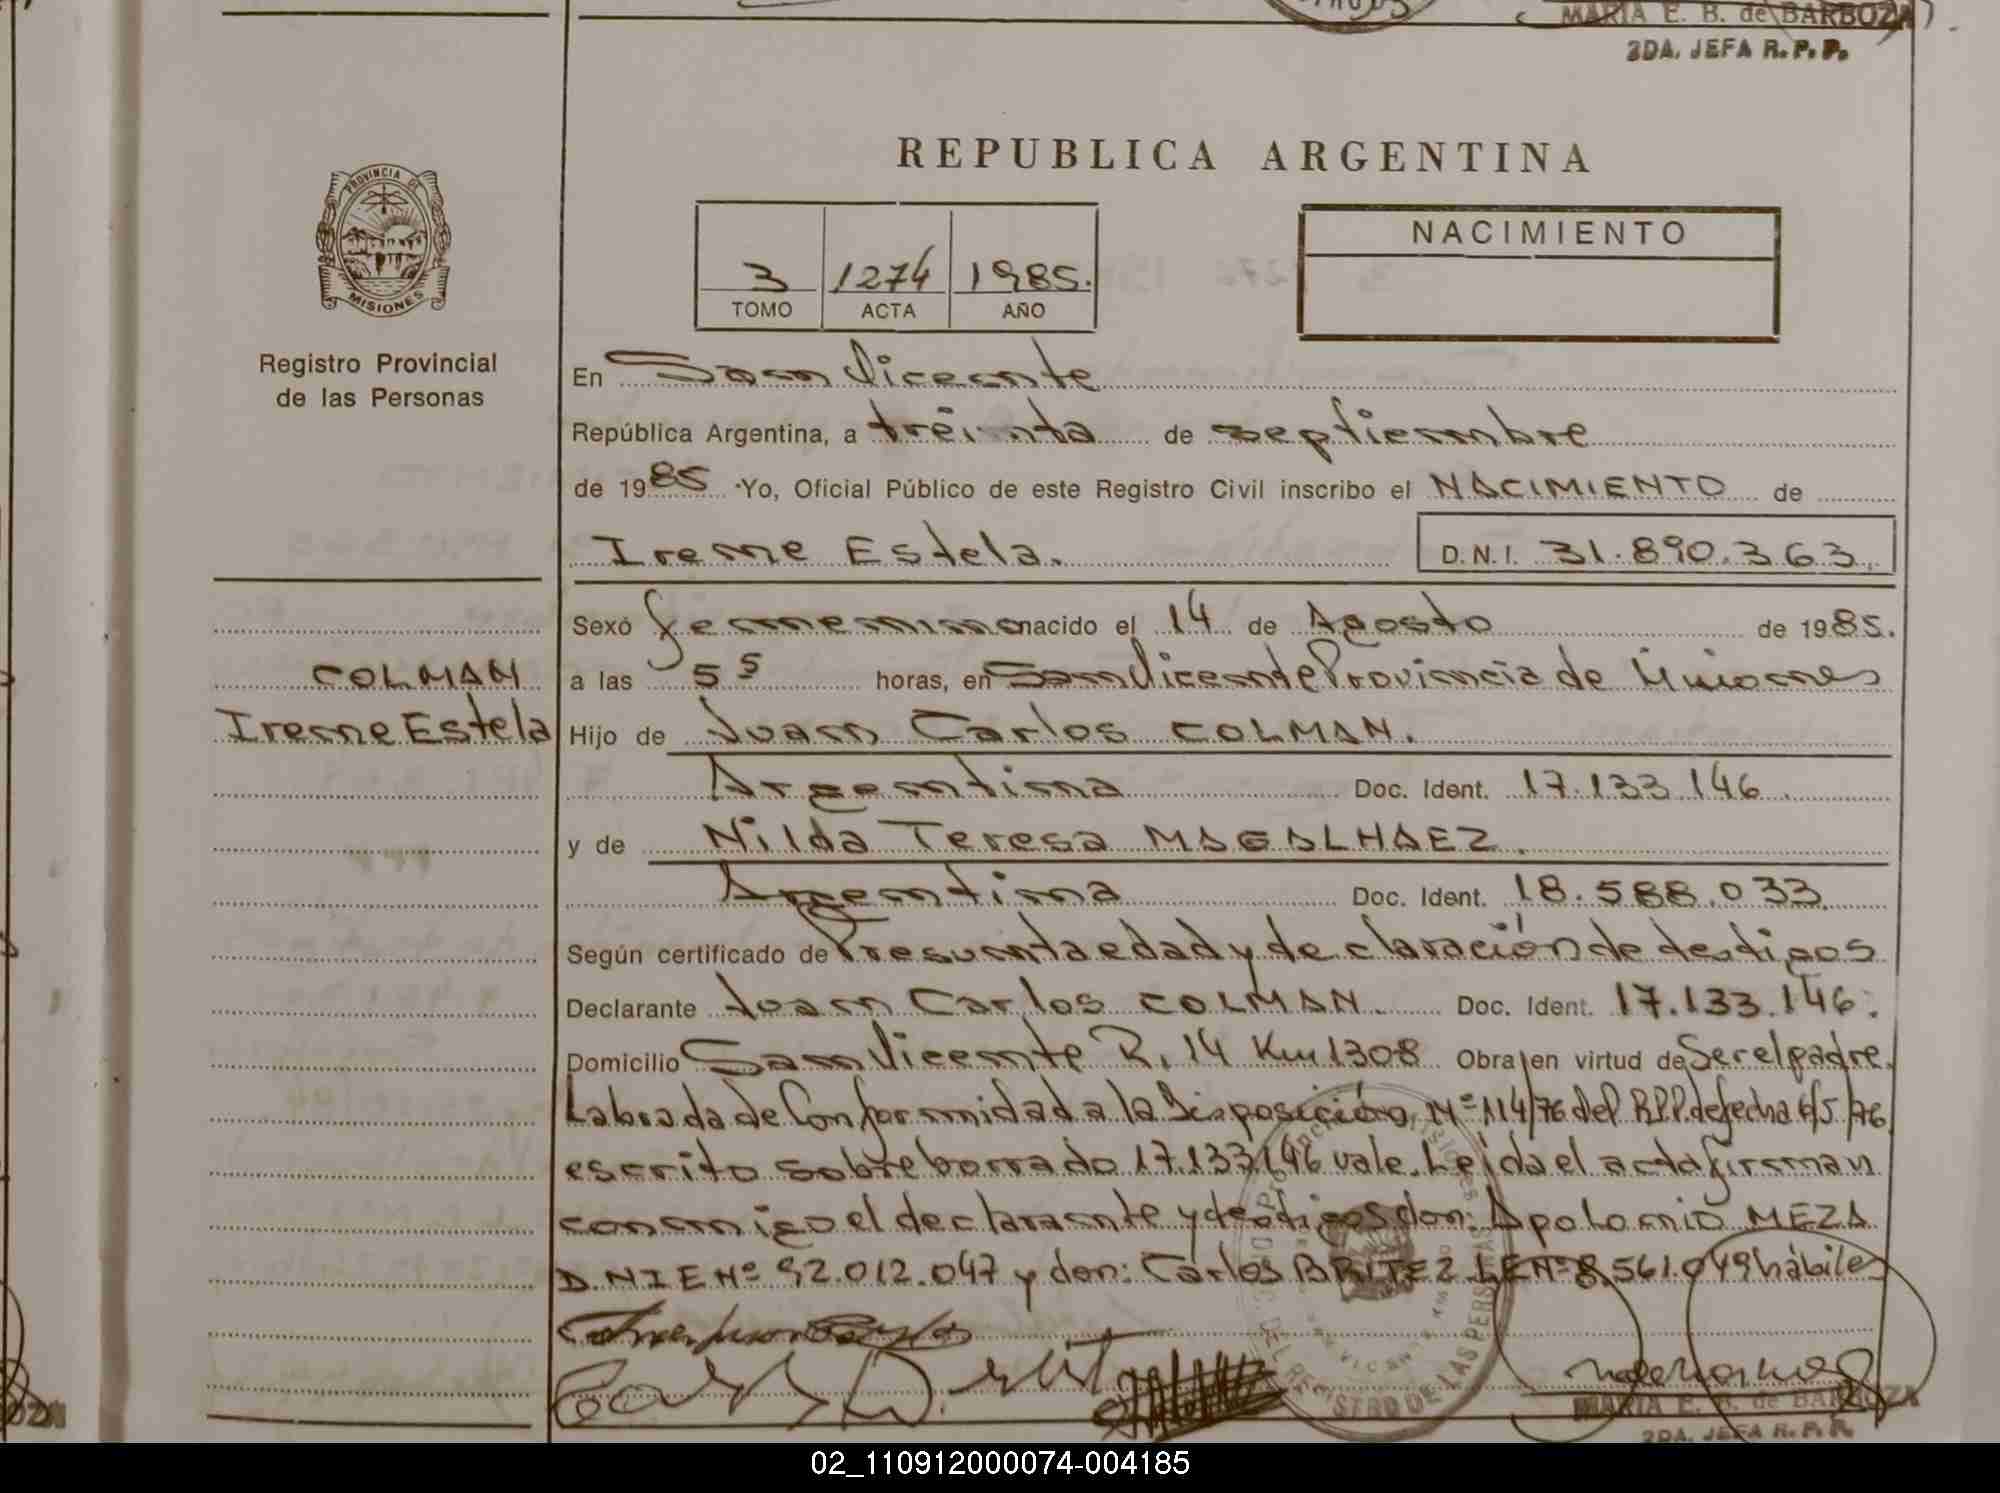 MARIA E. B. de BARBOZA
2DA. JEFA R. P. P.
REPUBLICA ARGENTINA
PROVINCIA DE
MISIONES
Registro Provincial
de las Personas
3 1274 1985.
TOMO ACTA AÑO
NACIMIENTO
En San Vicente
República Argentina, a treinta de septiembre
de 1985 Yo, Oficial Público de este Registro Civil inscribo el NACIMIENTO de
Irene Estela. D.N.I. 31.890.363.
Sexo femenino nacido el 14 de Agosto de 1985.
COLMAN
Irene Estela
a las 5 5 horas, en San Vicente Provincia de Misiones
Hijo de Juan Carlos COLMAN.
Argentina Doc. Ident. 17.133.146.
y de Nilda Teresa MAGALHAEZ.
Argentina Doc. Ident. 18.588.033.
Según certificado de Presunta edad y declaración de testigos
Declarante Juan Carlos COLMAN. Doc. Ident. 17.133.146.
Domicilio San Vicente R. 14 Km 1308 Obra en virtud de Ser el padre.
Labrada de Conformidad a la Disposición Nº 114/76 del R.P.P. de fecha 6/5/76
escrito sobre borrado 17.133.146 vale. Leída el acta firman
conmigo el declarante y testigos don: Apolonio MEZA
D.N.I E Nº 92.012.047 y don: Carlos BRITEZ LE Nº 8.561.049 hábiles
REGISTRO DE LAS PERSONAS
MARIA E. B. de BARBOZA
2DA. JEFA R. P. P.
02_110912000074-004185